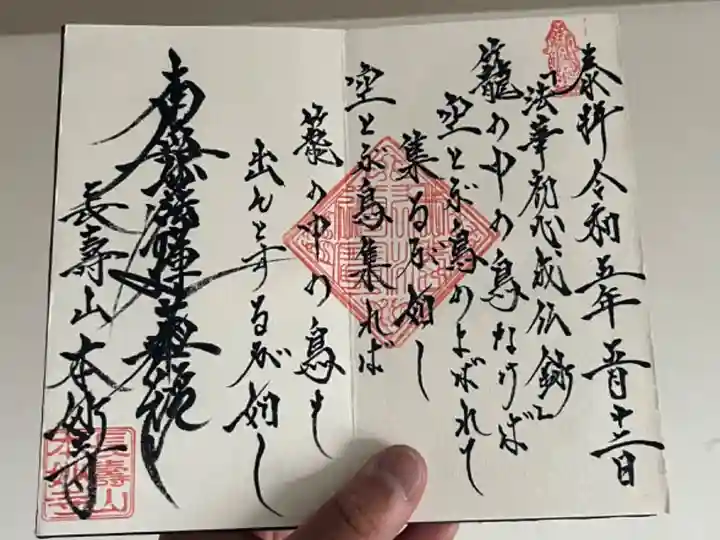 奉拝 令和五年 五月十二日
「法華初心成仏鈔」
籠の中の鳥なけば
空とぶ鳥のよばれて
集るが如し
空とぶ鳥集れば
籠の中の鳥も
出んとするが如し
南無妙法蓮華経
長壽山 本妙寺
長壽山
本妙寺